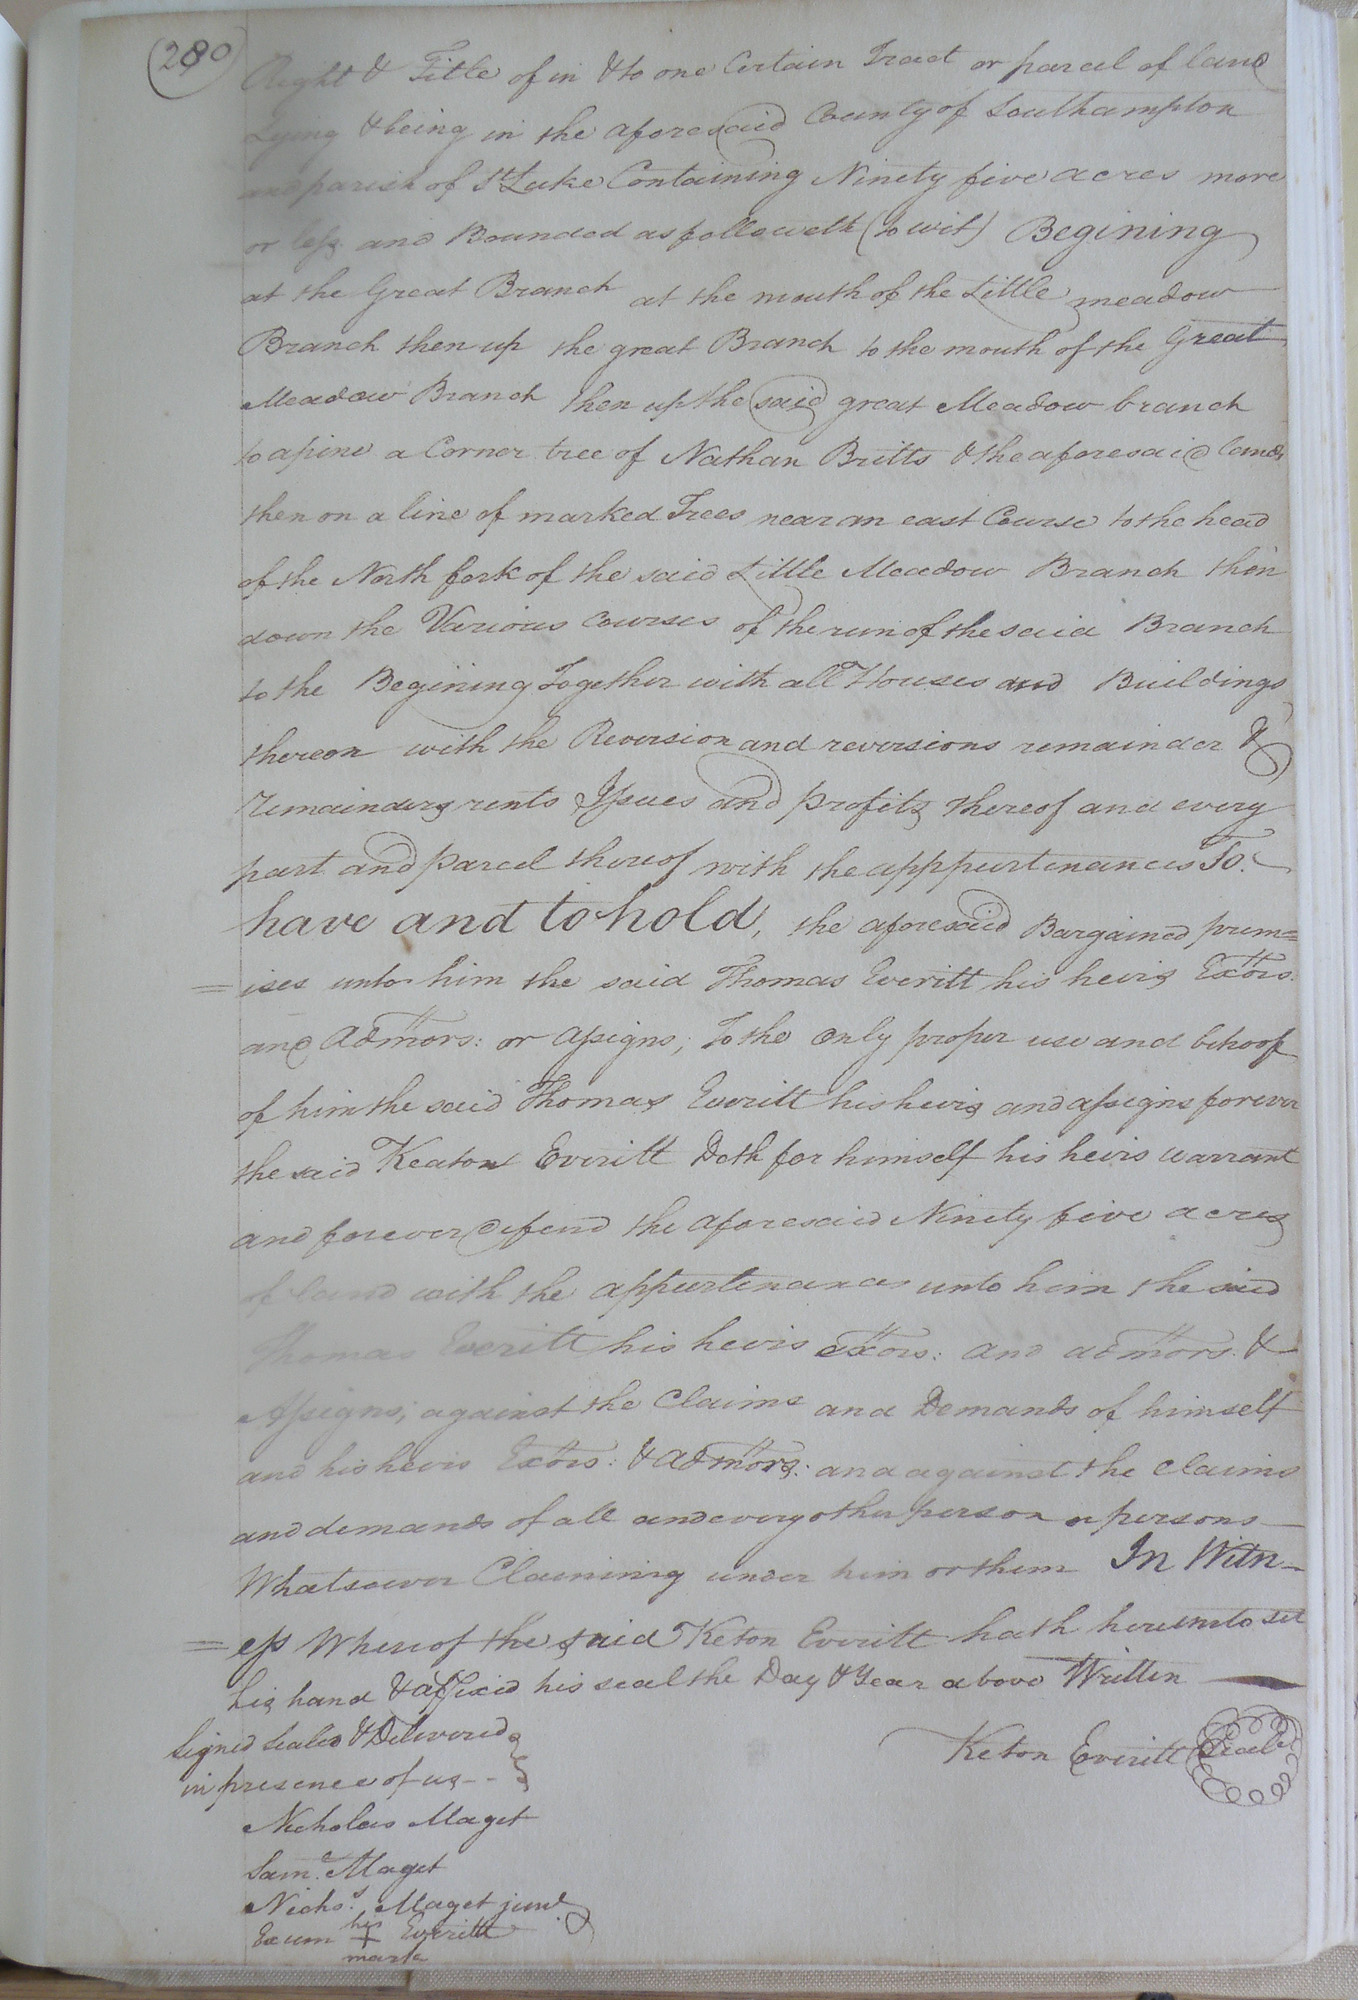 (280)
Right & Title of in & to one Certain Tract or parcel of land
Lying & being in the aforesaid County of Southampton
and parish of St Luke Containing Ninety five acres more
or less and Bounded as followeth (to wit) Begining
at the Great Branch at the mouth of the Little meadow
Branch then up the great Branch to the mouth of the Great
Meadow Branch then up the said great Meadow branch
to a pine a Corner tree of Nathan Britts & the aforesaid lands
then on a line of marked Trees near an east Course to the head
of the North fork of the said Little Meadow Branch then
down the Various courses of the run of the said Branch
to the Begining Together with all Houses and Buildings
thereon with the Reversion and reversions remainder &
remainders rents Issues and profits thereof and every
part and parcel thereof with the apppurtenances To.
have and to hold, the aforesaid Bargained prem=
=ises unto him the said Thomas Everitt his heirs Exors.
and Admors: or assigns; To the only proper use and behoof
of him the said Thomas Everitt his heirs and assigns forever
the said Keaton Everitt Doth for himself his heirs warrant
and forever defend the aforesaid Ninety five acres
of land with the appurtenances unto him the said
Thomas Everitt his heirs exors: and admors. &
Assigns; against the Claims and Demands of himself
and his heirs Exors: & admors: and against the claims
and demands of all and every other person or persons
Whatsoever Claiming under him or them In Witn-
=ess Whereof the said Keton Everitt hath hereunto set
his hand & affixed his seal the Day & Year above Written
Signed sealed & Delivered
in presence of us--
Keton Everitt Seal
Nicholas Maget
Saml. Maget
Nichs. Maget junr.
his
Exum + Everitt
mark